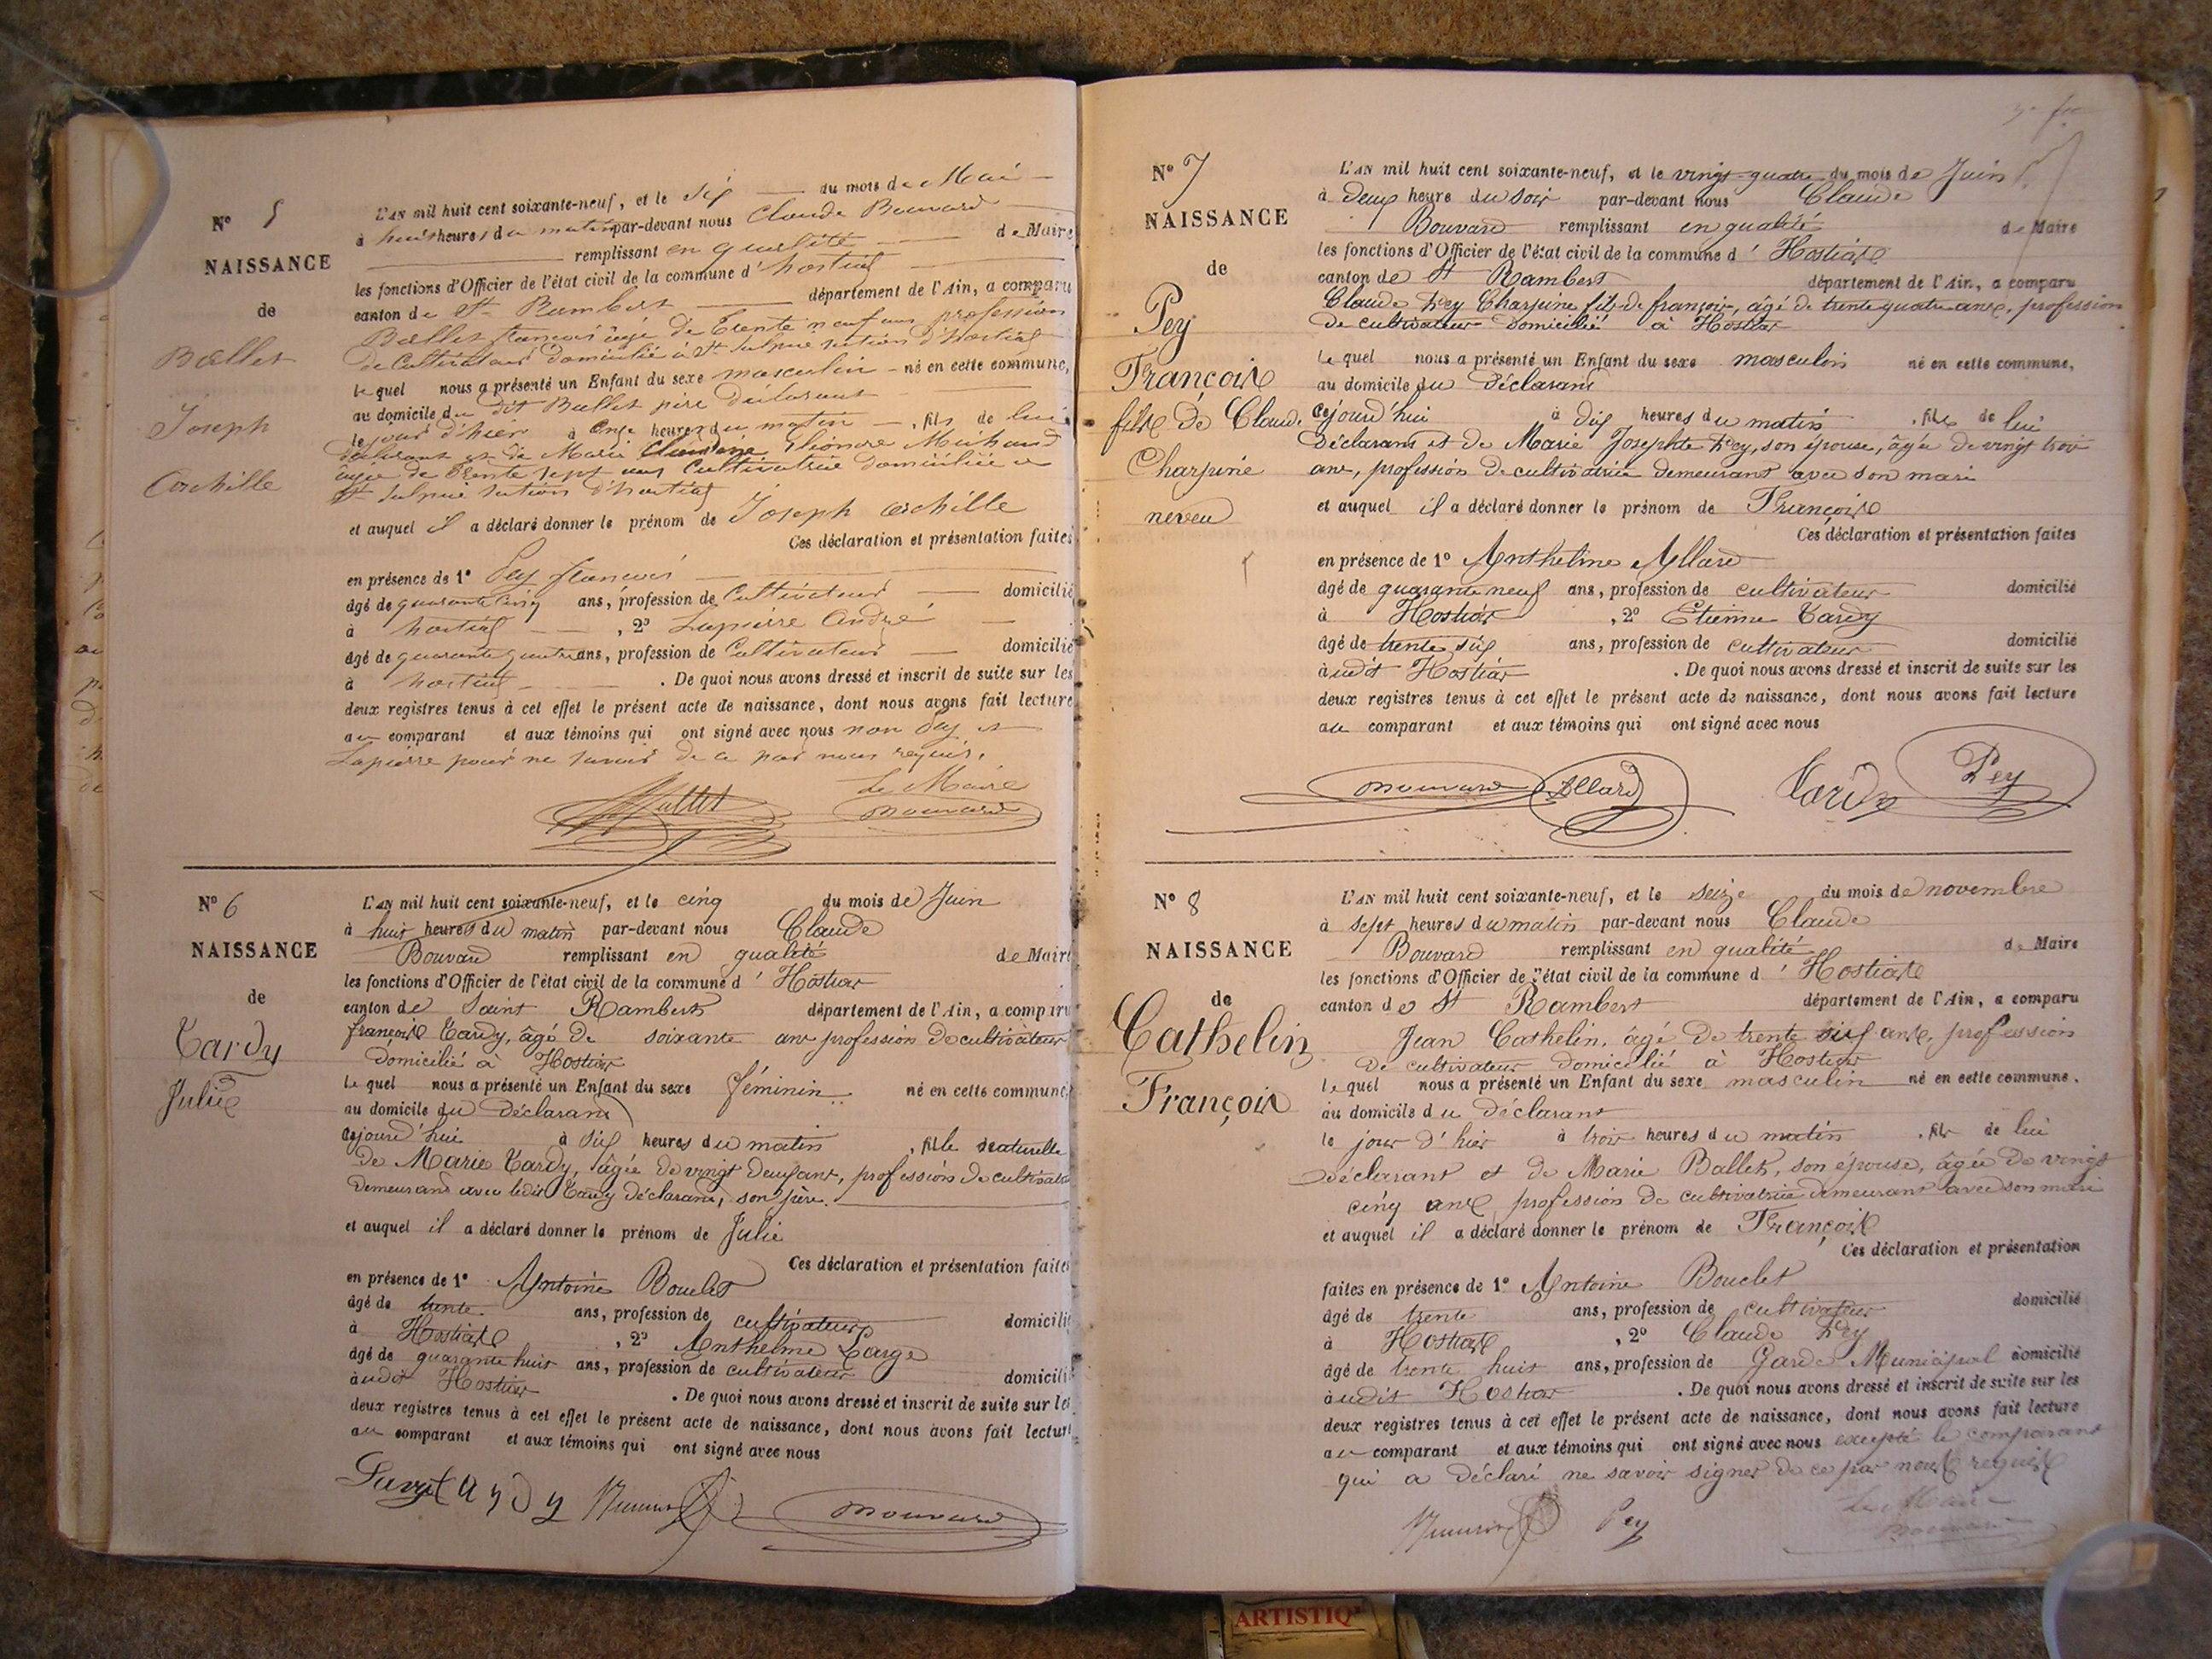 N° 5
NAISSANCE
de
Ballet
Joseph
Achille
L'AN mil huit cent soixante-neuf, et le six du mois de Mai
à huit heures du matin par-devant nous Claude Bouvard
remplissant en qualité de Maire
les fonctions d'Officier de l'état civil de la commune d'hostias
canton de St Rambert département de l'Ain, a comparu
Ballet francois âgé de trente neuf ans profession
de Cultivateur domicilié à St Sulpice section d'hostias
lequel nous a présenté un Enfant du sexe masculin né en cette commune,
au domicile du dit Ballet père déclarant
le jour d'hier à onze heures du matin, fils de lui
déclarant et de Marie Eléonore Michaud
âgée de trente sept ans Cultivatrice domiciliée à
St Sulpice section d'hostias
et auquel il a déclaré donner le prénom de Joseph Achille
Ces déclaration et présentation faites
en présence de 1° Pey francois
âgé de quarante cinq ans, profession de Cultivateur domicilié
à hostias, 2° Lapierre André
âgé de quarante quatre ans, profession de Cultivateur domicilié
à hostias. De quoi nous avons dressé et inscrit de suite sur les
deux registres tenus à cet effet le présent acte de naissance, dont nous avons fait lecture
au comparant et aux témoins qui ont signé avec nous non Pey et
Lapierre pour ne savoir de ce par nous requis.
Le Maire
Ballet Bouvard
N° 6
NAISSANCE
de
Tardy
Julie
L'AN mil huit cent soixante-neuf, et le cinq du mois de Juin
à huit heures du matin par-devant nous Claude
Bouvard remplissant en qualité de Maire
les fonctions d'Officier de l'état civil de la commune d'Hostias
canton de Saint Rambert département de l'Ain, a comparu
françois Tardy, âgé de soixante ans profession de cultivateur
domicilié à Hostias
lequel nous a présenté un Enfant du sexe féminin né en cette commune,
au domicile du déclarant
cejourd'hui à six heures du matin, fille naturelle
de Marie Tardy, âgée de vingt deux ans, profession de cultivatrice
demeurant avec ledit Tardy déclarant, son père.
et auquel il a déclaré donner le prénom de Julie
Ces déclaration et présentation faites
en présence de 1° Antoine Bouclet
âgé de trente ans, profession de cultivateur domicilié
à Hostias, 2° Anthelme Large
âgé de quarante huit ans, profession de cultivateur domicilié
à udit Hostias. De quoi nous avons dressé et inscrit de suite sur les
deux registres tenus à cet effet le présent acte de naissance, dont nous avons fait lecture
au comparant et aux témoins qui ont signé avec nous
Bouvard
N° 7
NAISSANCE
de
Pey
François
fils de Claude
Charpine
neveu
L'AN mil huit cent soixante-neuf, et le vingt-quatre du mois de Juin
à deux heure du soir par-devant nous Claude
Bouvard remplissant en qualité de Maire
les fonctions d'Officier de l'état civil de la commune d'Hostias
canton de St Rambert département de l'Ain, a comparu
Claude Pey Charpine fils de françois, âgé de trente quatre ans, profession
de cultivateur domicilié à Hostias
lequel nous a présenté un Enfant du sexe masculin né en cette commune,
au domicile du déclarant
cejourd'hui à dix heures du matin, fils de lui
déclarant et de Marie Josephte Pey, son épouse, âgée de vingt trois
ans, profession de cultivatrice demeurant avec son mari
et auquel il a déclaré donner le prénom de François
Ces déclaration et présentation faites
en présence de 1° Anthelme Allard
âgé de quarante neuf ans, profession de cultivateur domicilié
à Hostias, 2° Etienne Tardy
âgé de trente six ans, profession de cultivateur domicilié
à udit Hostias. De quoi nous avons dressé et inscrit de suite sur les
deux registres tenus à cet effet le présent acte de naissance, dont nous avons fait lecture
au comparant et aux témoins qui ont signé avec nous
Bouvard Allard Tardy Pey
N° 8
NAISSANCE
de
Cathelin
François
L'AN mil huit cent soixante-neuf, et le seize du mois de novembre
à sept heures du matin par-devant nous Claude
Bouvard remplissant en qualité de Maire
les fonctions d'Officier de l'état civil de la commune d'Hostias
canton de St Rambert département de l'Ain, a comparu
Jean Cathelin, âgé de trente six ans, profession
de cultivateur domicilié à Hostias
lequel nous a présenté un Enfant du sexe masculin né en cette commune.
au domicile du déclarant
le jour d'hier à trois heures du matin, fils de lui
déclarant et de Marie Ballet, son épouse, âgée de vingt
cinq ans, profession de cultivatrice demeurant avec son mari
et auquel il a déclaré donner le prénom de François
Ces déclaration et présentation
faites en présence de 1° Antoine Bouclet
âgé de trente ans, profession de cultivateur domicilié
à Hostias, 2° Claude Pey
âgé de trente huit ans, profession de Garde Municipal domicilié
à udit Hostias. De quoi nous avons dressé et inscrit de suite sur les
deux registres tenus à cet effet le présent acte de naissance, dont nous avons fait lecture
au comparant et aux témoins qui ont signé avec nous excepté le comparant
qui a déclaré ne savoir signer de ce par nous requis
Le Maire
Pey Bouvard
ARTISTIQ